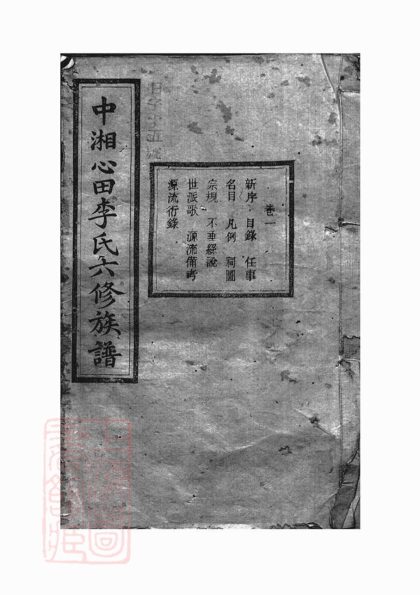 中湘心田李氏六修族譜
卷一
新序 目錄 任事
名目 凡例 祠圖
宗規 不垂經說
世派歌 源流備考
源流衍錄